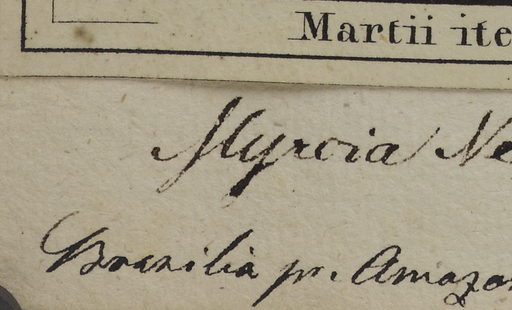 Martii ite
Myrcia Ne
Brasilia pr. Amazon